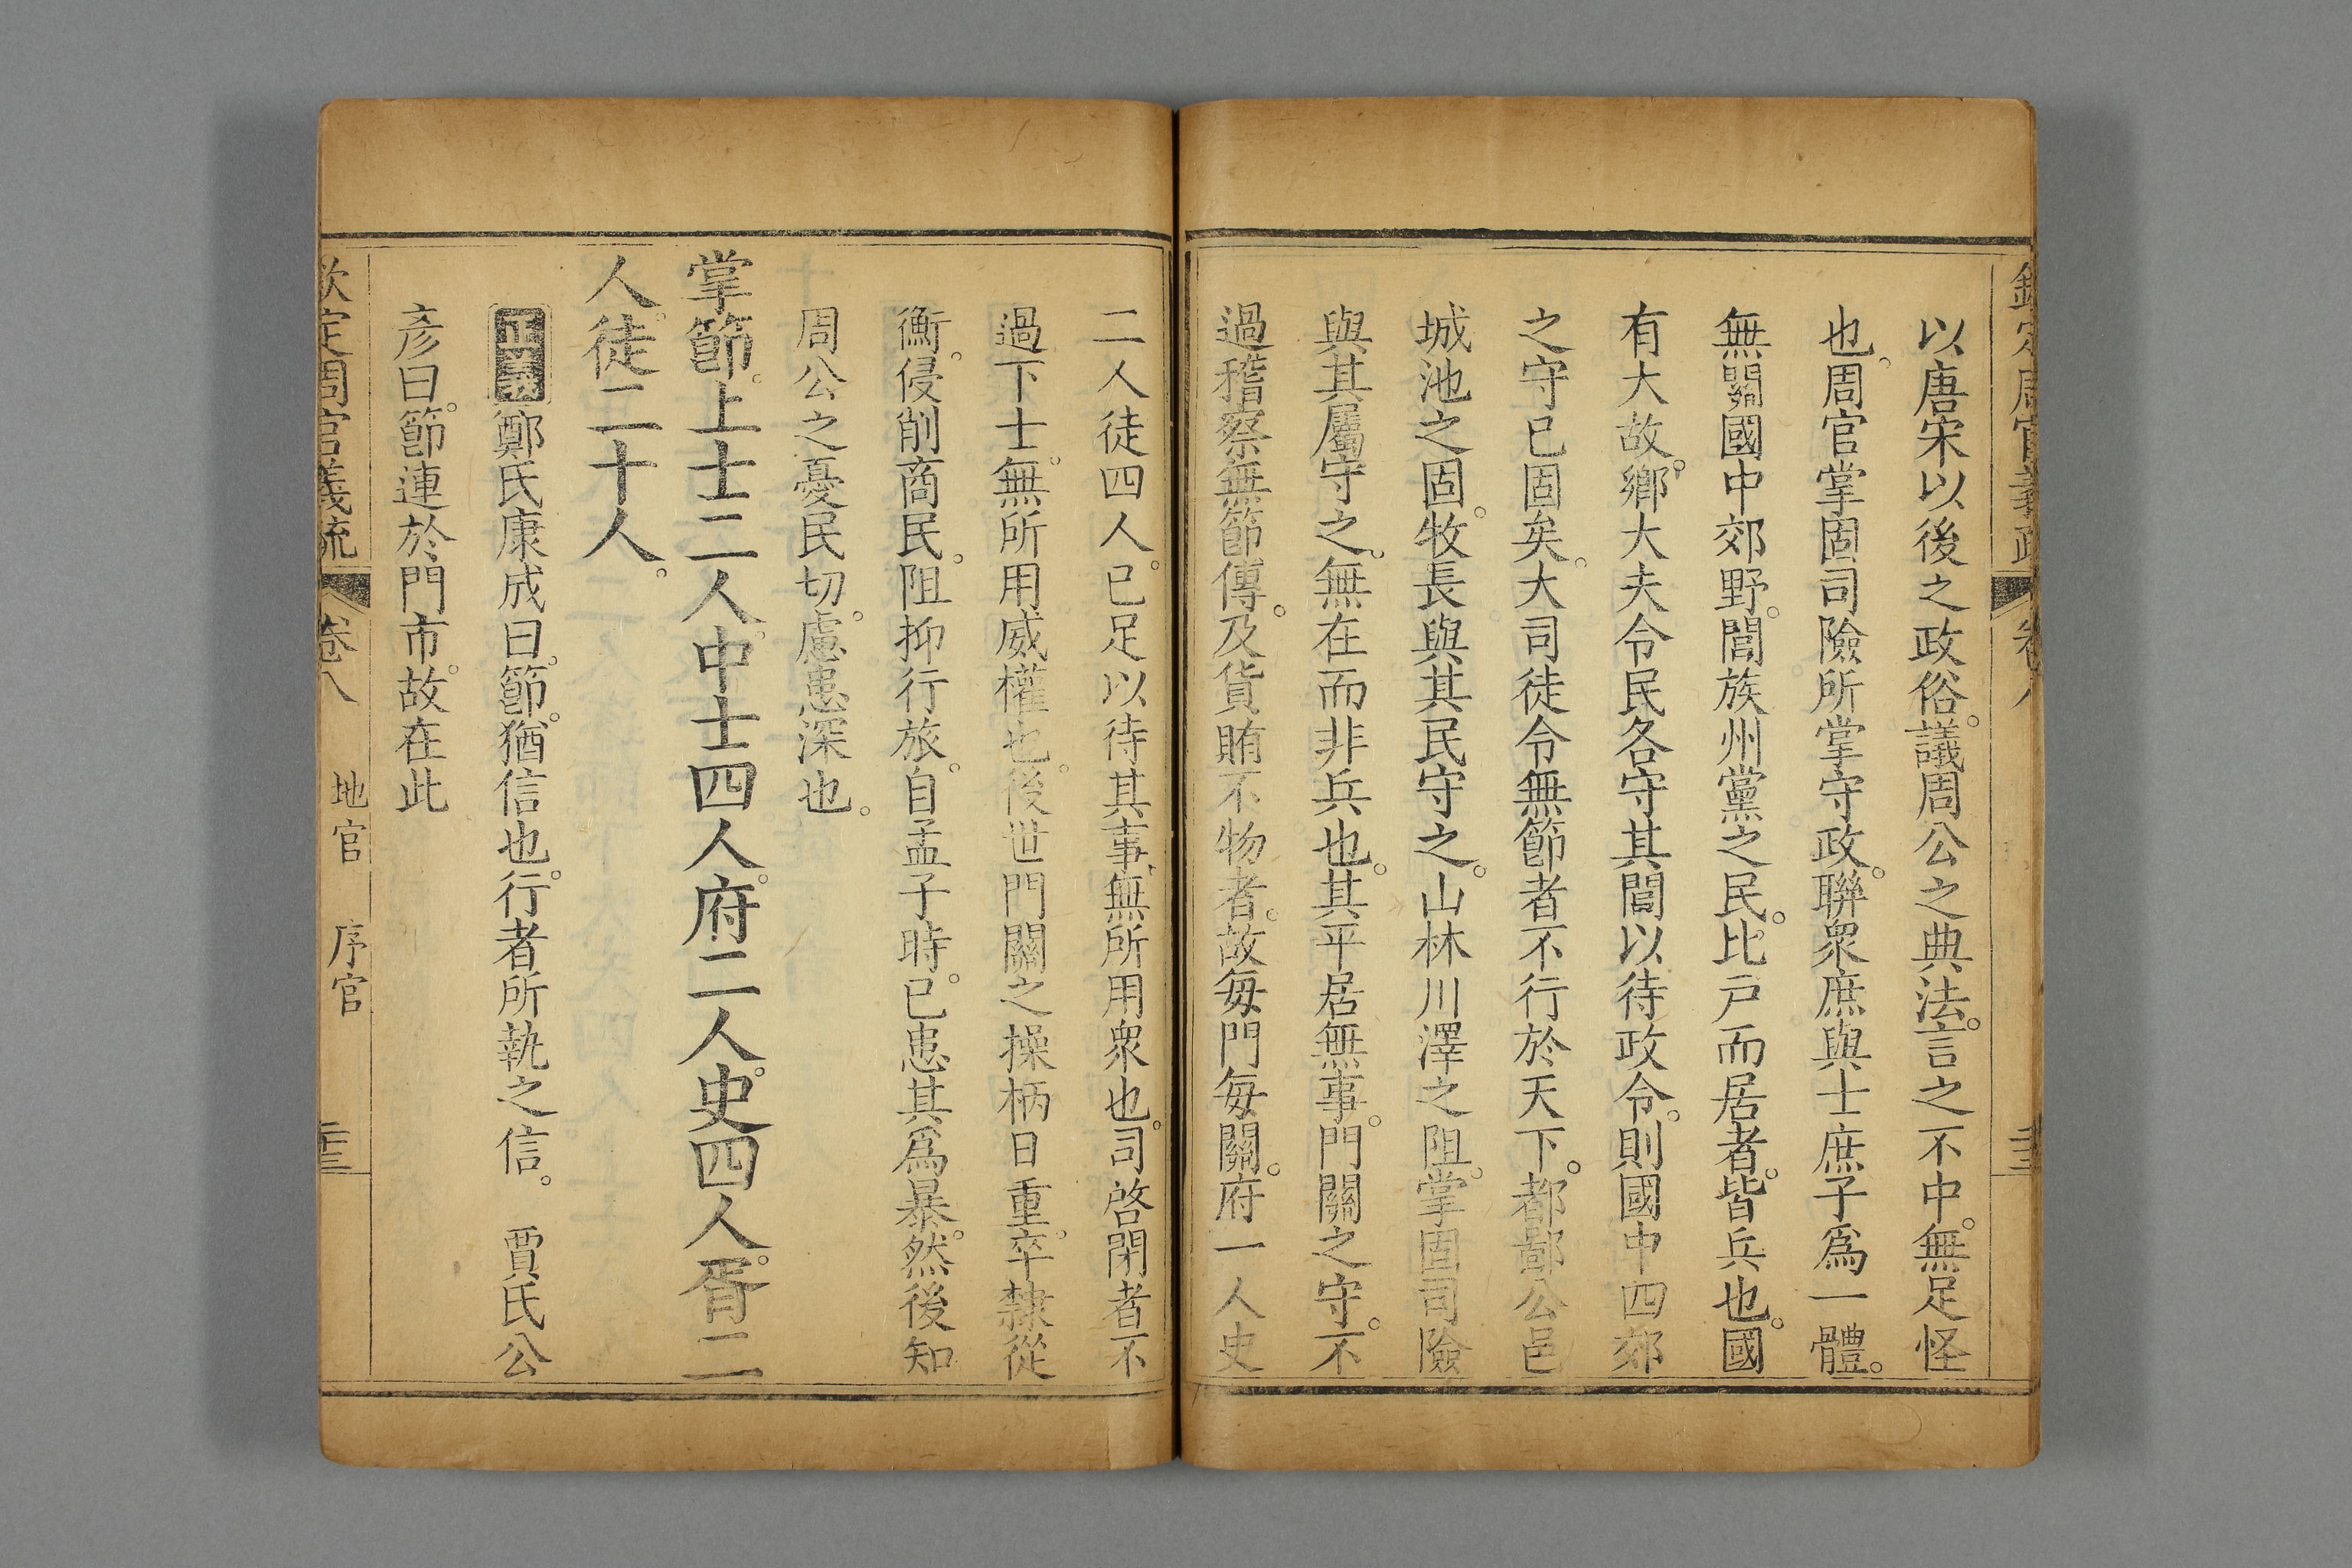 欽定周官義疏 卷八 二三
以唐宋以後之政俗。議周公之典法。言之不中。無足怪
也。周官掌固司險所掌守政。聯衆庶與士庶子爲一體。
無關國中郊野。閭族州黨之民。比戸而居者。皆兵也。國
有大故。鄉大夫令民各守其閭以待政令。則國中四郊
之守已固矣。大司徒令無節者不行於天下。都鄙公邑
城池之固。牧長與其民守之。山林川澤之阻。掌固司險
與其屬守之。無在而非兵也。其平居無事。門關之守。不
過稽察無節傳。及貨賄不物者。故每門每關。府一人史
二人徒四人。已足以待其事。無所用衆也。司啓閉者不
過下士。無所用威權也。後世門關之操柄日重。卒隸從
衡。侵削商民。阻抑行旅。自孟子時。已患其爲暴。然後知
周公之憂民切。慮患深也。
掌節。上士二人。中士四人。府二人。史四人。胥二
人。徒二十人。
正義鄭氏康成曰。節。猶信也。行者所執之信。 賈氏公
彥曰。節連於門市。故在此
欽定周官義疏 卷八 地官 序官 二三